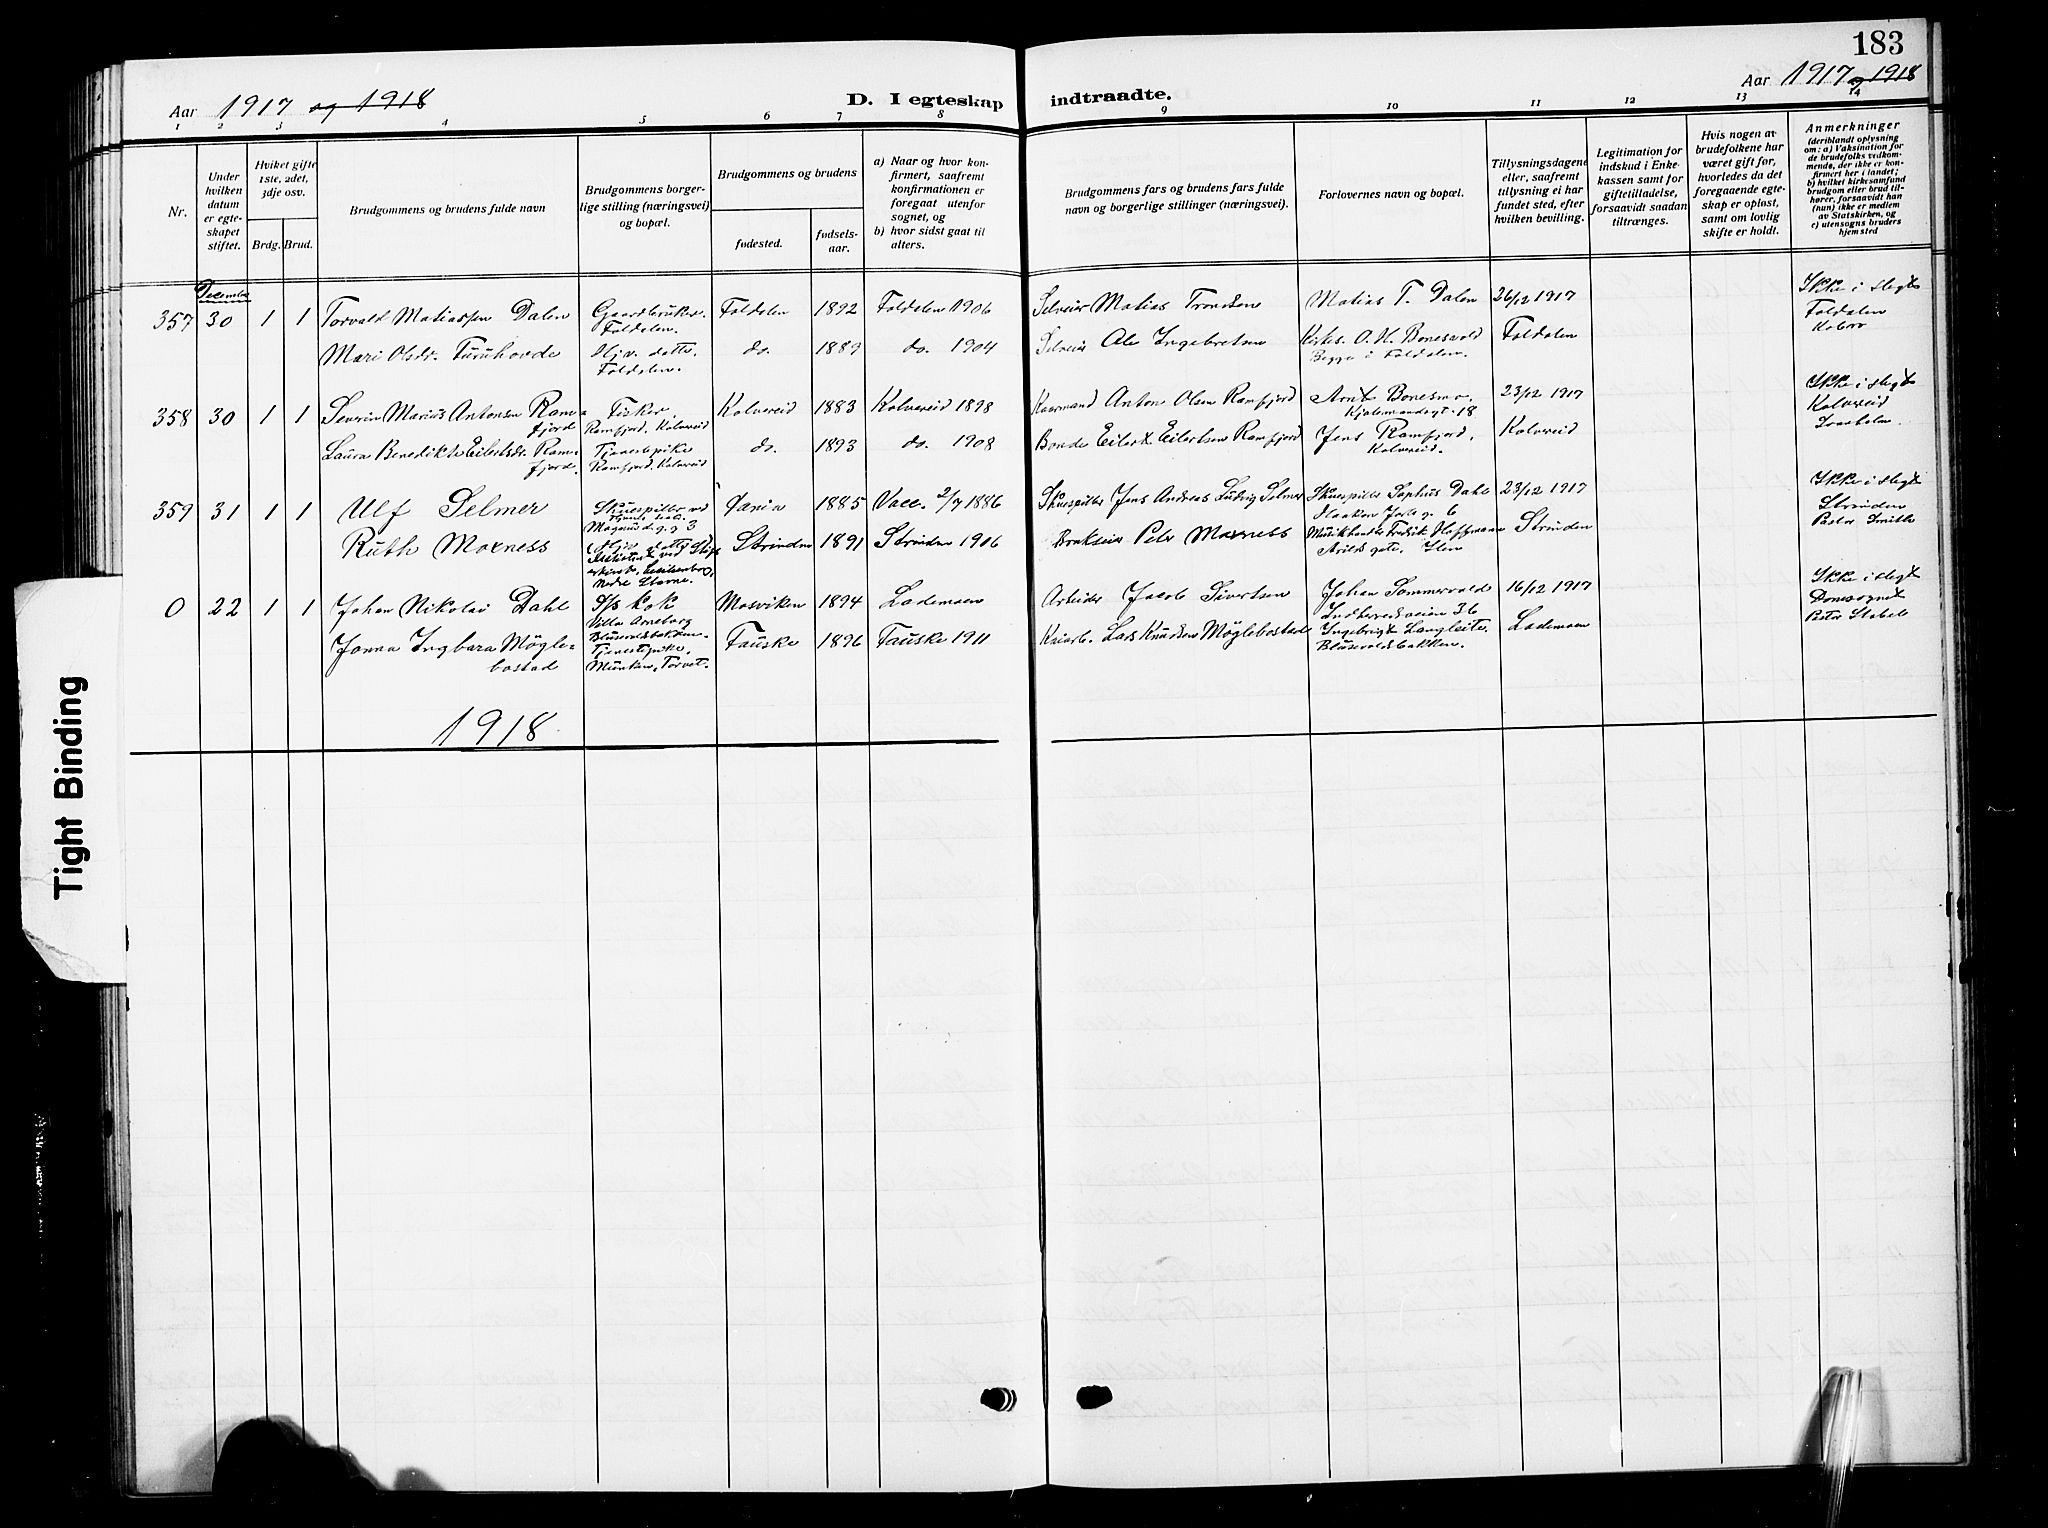 183
Aar 1917 og 1918
D. I egteskap indtraadte.
Aar 1917 og 1918
1 2 3 4 5 6 7 8 9 10 11 12 13 14
Nr.
Under hvilken datum er egteskapet stiftet.
Hviket gifte 1ste, 2det, 3dje osv.
Brdg. Brud.
Brudgommens og brudens fulde navn
Brudgommens borgerlige stilling (næringsvei) og bopæl.
Brudgommens og brudens
fødested.
fødselsaar.
a) Naar og hvor konfirmert, saafremt konfirmationen er foregaat utenfor sognet, og
b) hvor sidst gaat til alters.
Brudgommens fars og brudens fars fulde navn og borgerlige stillinger (næringsvei).
Forlovernes navn og bopæl.
Tillysningsdagene eller, saafremt tillysning ei har fundet sted, efter hvilken bevilling.
Legitimation for indskud i Enkekassen samt for giftetilladelse, forsaavidt saadan tiltrænges.
Hvis nogen av brudefolkene har været gift før, hvorledes da det foregaaende egteskap er opløst, samt om lovlig skifte er holdt.
Anmerkninger
(deriblandt oplysning om: a) Vaksination for de brudefolks vedkommende, der ikke er konfirmert her i landet; b) hvilket kirkesamfund brudgom eller brud tilhører, forsaavidt han (hun) ikke er medlem av Statskirken, og c) utensogns bruders hjemsted
December
357 30 1 1 Torvald Matiassen Dalen Gaardbruker. Foldalen. Foldalen 1892 Foldalen 1906 Selveier Matias Trondsen Matias T. Dalen 26/12 1917 Ikke i slegt
Mari Olsdr. Furuhovde Hjv. datter. Foldalen. do. 1889 do. 1904 Selveier Ole Ingebretsen Kirkes. O. H. Bonesvold Begge i Foldalen. Foldalen Foldalen
358 30 1 1 Severin Marius Antonsen Ramfjord Fisker. Ramfjord. Kolvereid Kolvereid 1883 Kolvereid 1898 Kaarmand Anton Olsen Ramfjord Arnt Bonesmo, Kjøbmandsgt. 18 23/12 1917 Ikke i slegt
Laura Benedikte Eilertsdr. Ramfjord Tjenestepike Ramfjord. Kolvereid do. 1893 do. 1908 Bonde Eilert Eilertsen Ramfjord Jens Ramfjord, Kolvereid. Kolvereid Kolvereid
359 31 1 1 Ulf Selmer Skuespiller ved Magnusd. g. 3 Xania 1885 Vacc. 2/7 1886 Skuespiller Jens Andreas Ludvig Selmer Skuespiller Sophus Dahl Haakon Jarls g. 6 23/12 1917 Ikke i slegt
Ruth Moxness Strinden 1891 Strinden 1906 Brukseier Peter Moxness Musikhandler Fredrik Hoffmann Arilds gate, Ilen Strinden Strinden Pastor Smith
0 22 1 1 Johan Nikolai Dahl S/s kok Villa Arneborg Blusuvoldsbakken. Mosviken 1894 Lademoen Arbeider Jacob Sivertsen Johan Sommervold Indherredsveien 36 16/12 1917 Ikke i slegt
Jonna Ingbara Møglebostad Tjenestepike. Munken, Torvet. Fauske 1896 Fauske 1911 Kaiarb. Lars Knudsen Møglebostad Ingebrigt Langleite. Blusevoldsbakken. Lademoen Domsognet
1918
Tight Binding